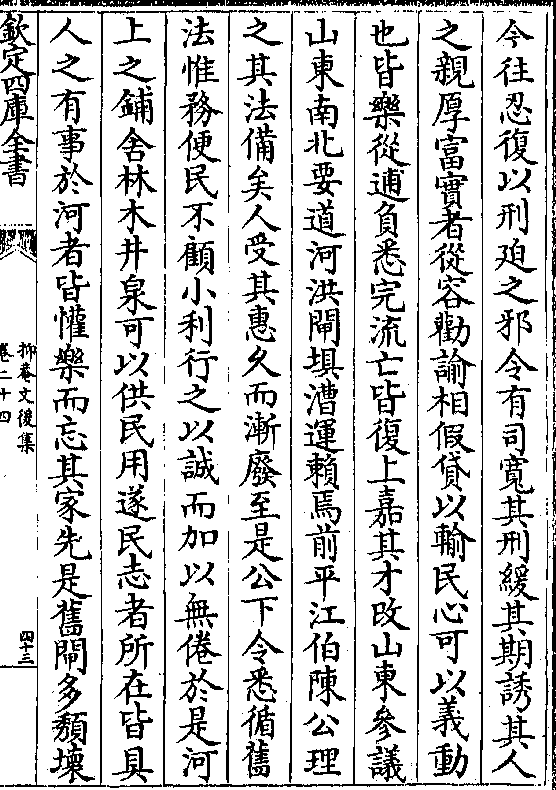 今往忍復以刑廹之邪令有司寛其刑緩其期誘其人
之親厚富實者從容勸諭相假貸以輸民心可以義動
也皆樂從逋負悉完流亡皆復上嘉其才改山東參議
山東南北要道河洪閘埧漕運賴焉前平江伯陳公理
之其法備矣人受其惠久而漸廢至是公下令悉循舊
法惟務便民不顧小利行之以誠而加以無倦於是河
上之鋪舍林木井泉可以供民用遂民志者所在皆具
人之有事於河者皆懽樂而忘其家先是舊閘多頽壞
欽定四庫全書
抑菴文後集
卷二十四
四十三